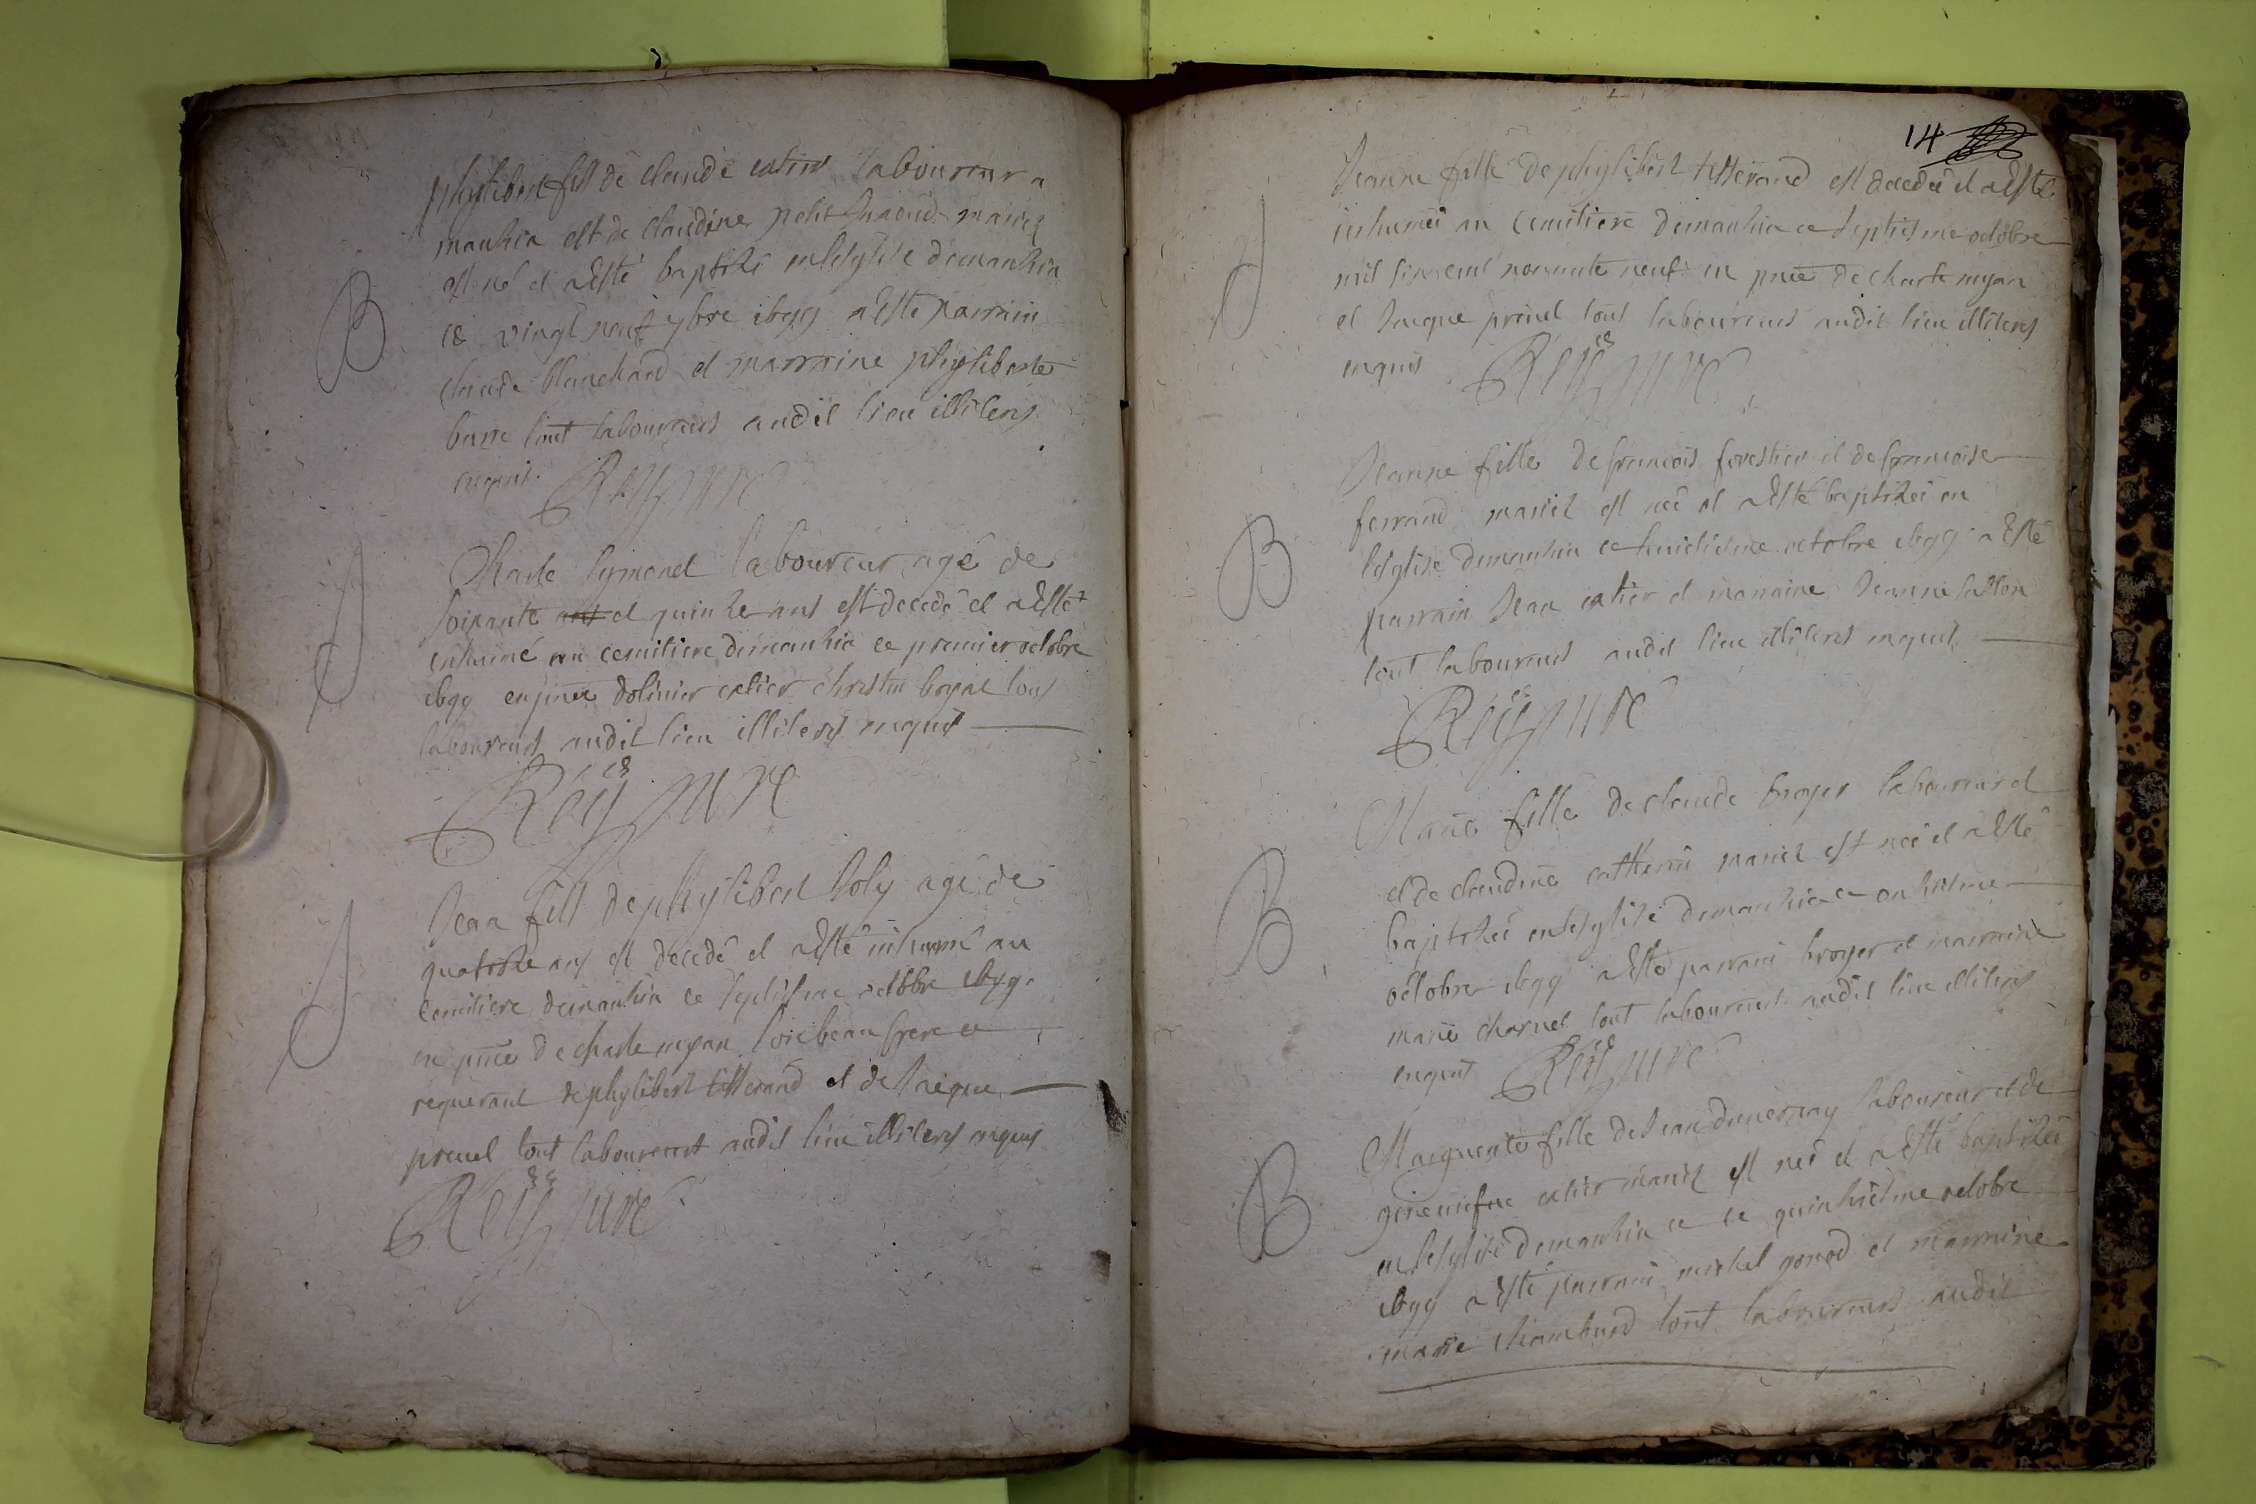 B
phylibert fils de claude catier laboureur a
manhia et de claudine petit mariez
est né et a esté baptisé en lesglise de manhia
ce vingt neuf 7bre 1699 a esté parrain
claude blanchard et marraine phyliberte
buire tout laboureurs audit lieu illiteres
enquis. Rey curé
J
Charle symonet laboureur agé de
soixante ans et quinze ans est decedé et a esté
inhumé au cemitiere de manhia ce premier octobre
1699 en pnce dolivier catier christin boyat tous
laboureurs audit lieu illiteres enquis
Rey curé
J
Jean fils de phylibert Joly agé de
quatorze ans est decedé et a esté inhumé au
cemitiere de manhia ce septiesme octobre 1699.
en pnce de charle myan son beau frere ce
requerant de phylibert titterand et de Jacque
prevel tout laboureurs audit lieu illiteres enquis
Rey curé
14
J
Jeanne fille de phylibert titterand est decedée et a esté
inhumée au cemitiere de manhia ce septiesme octobre
mil six cent nonante neuf en pnce de charle myan
et Jacque prevel tous laboureurs audit lieu illiteres
enquis Rey curé
B
Jeanne fille de francois forestier et de francoise
ferrand mariez est née et a esté baptizée en
lesglise de manhia ce huictiesme octobre 1699 a esté
parrain Jean catier et marraine Jeanne
tout laboureurs audit lieu illiteres enquis
Rey curé
B
Marie fille de claude broyer laboureur et
et de claudine catherin mariez est née et a esté
baptizée en lesglise de manhia ce onziesme
octobre 1699 a esté parrain broyer et marraine
marie charvet tout laboureurs audit lieu illiteres
enquis Rey curé
B
Marguerite fille de Jean duvernay laboureur et de
geneviefve catier mariez est née et a esté baptizée
en lesglise de manhia ce ce quinziesme octobre
1699 a esté parrain michel gonod et marraine
marie chambard tout laboureurs audit